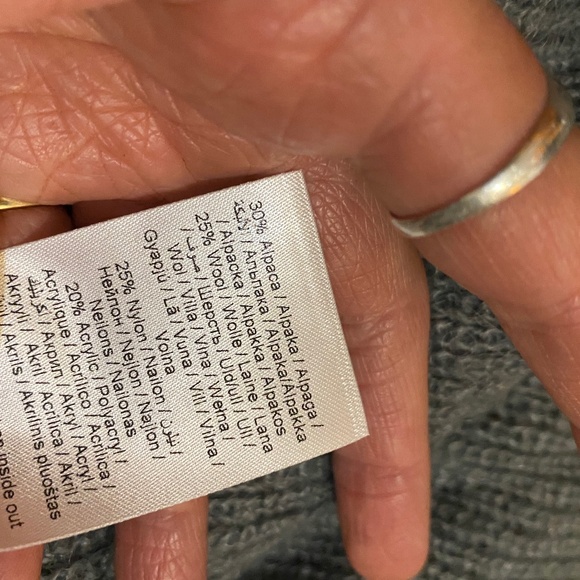 30% Alpaca / Alpaka / Alpaga /
/ Альпака / Alpaka/Alpakka
/ Alpacka / Alpakka / Alpakos
25% Wool / Wolle / Laine / Lana
/ صوف / Шерсть / Uld/ull / Ull /
Wol / Villa / Vlna / Wełna /
Gyapjú / Lã / Vuna / Vill / Vilna /
Volna
25% Nylon / Nailon / نايلون /
Нейлон / Nejlon / Nailon /
Neilons / Nailonas
20% Acrylic / Polyacryl /
Acrylique / Acrilico / Acrílica /
اكريليك / Акрил / Akryl / Acryl /
Akryyli / Akril / Acrílica / Akril /
/ Akrils / Akrilinis pluoštas
inside out